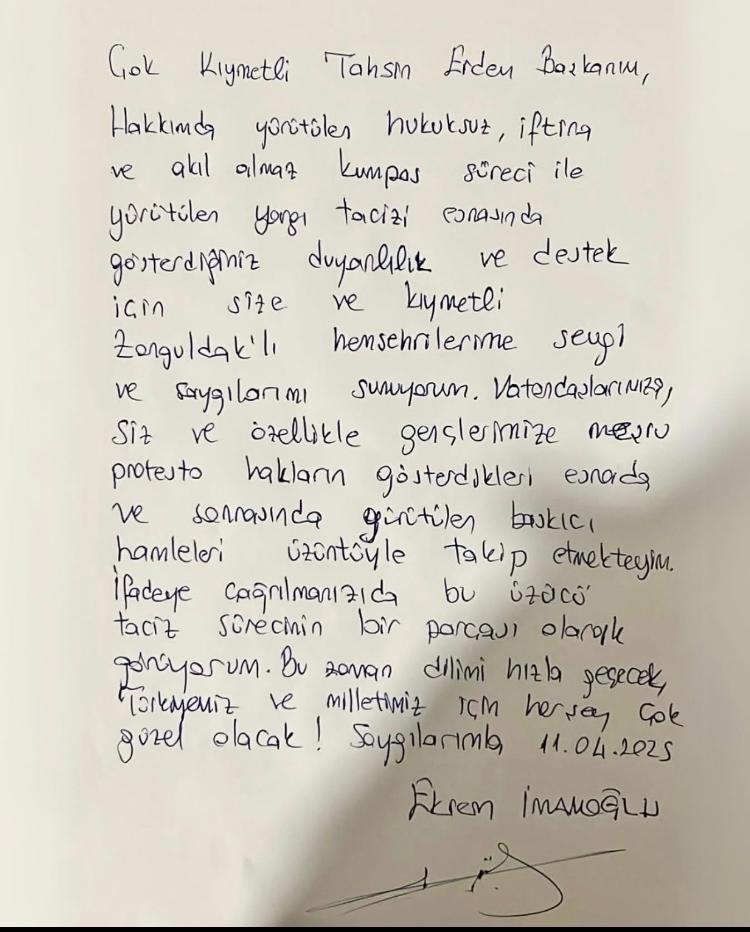 Çok Kıymetli Tahsin Erdem Başkanım,
Hakkımda yürütülen hukuksuz, iftira
ve akıl almaz kumpas süreci ile
yürütülen yargı tacizi esnasında
gösterdiğiniz duyarlılık ve destek
için size ve kıymetli
Zonguldak'lı hemşehrilerime sevgi
ve saygılarımı sunuyorum. Vatandaşlarımıza,
Siz ve özellikle gençlerimize meşru
protesto hakların gösterdikleri esnada
ve sonrasında yürütülen baskıcı
hamleleri üzüntüyle takip etmekteyim.
İfadeye çağrılmanızıda bu üzücü
taciz sürecinin bir parçası olarak
görüyorum. Bu zaman dilimi hızla geçecek,
Türkiyemiz ve milletimiz için herşey çok
güzel olacak! Saygılarımla 11.04.2025
Ekrem İMAMOĞLU